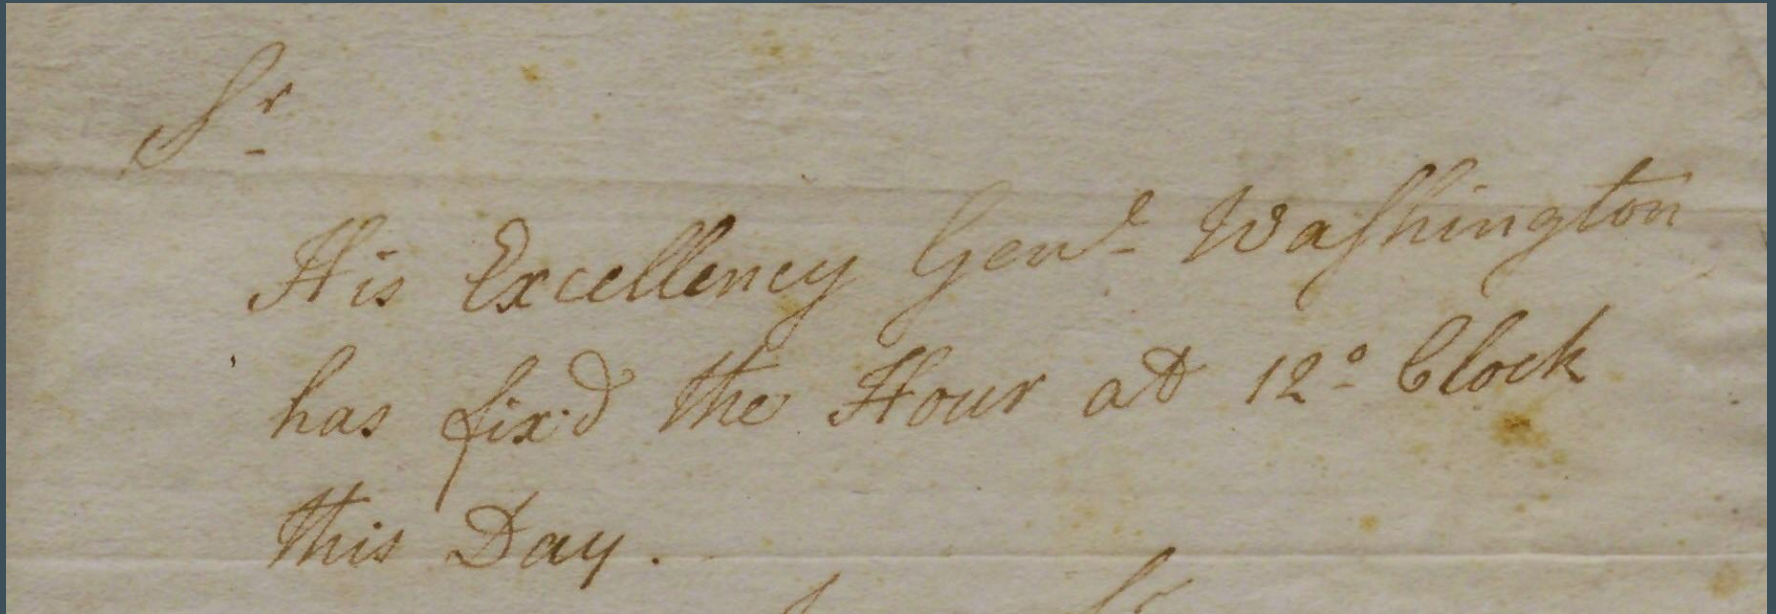 Sr
His Excellency Genl Washington
has fix'd the Hour at 12o Clock
this Day.